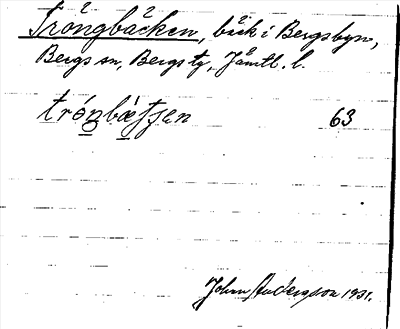 Trångbäcken, bäck i Bergsbyn,
Bergs sn, Bergs tg, Jämtl. l.
63
John Andersson 1931.